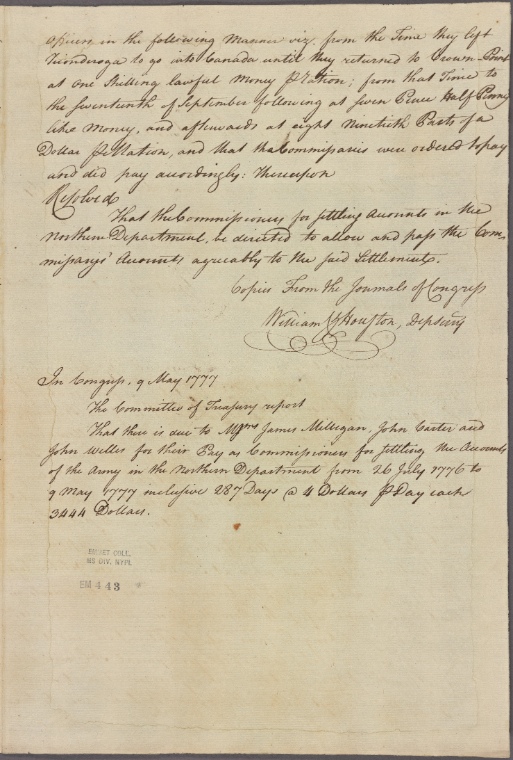 officers, in the following Manner viz. from the Time they left
Ticonderoga to go into Canada until they returned to Crown-Point
at one Shilling lawful Money P Ration; from that Time to
the seventeenth of September following at seven Pence Half-Penny
like Money, and afterwards at eight Ninetieth Parts of a
Dollar P Ration, and that the Commissaries were ordered to pay
and did pay accordingly: Thereupon
Resolved
That the Commissioners for settling Accounts in the
Northern Department, be directed to allow and pass the Com-
missarys' Accounts agreeably to the said Settlements.
Copies From the Journals of Congress
William Houston, Dep Secry
In Congress, 9 May 1777
The Committee of Treasury report
That there is due to Messrs James Millegan, John Carter and
John Welles for their Pay as Commissioners for settling the Accounts
of the Army in the Northern Department from 26 July 1776 to
9 May 1777 inclusive 287 Days @ 4 Dollars P Day each
3444 Dollars.
EMMET COLL.
MS DIV. NYPL
EM 443